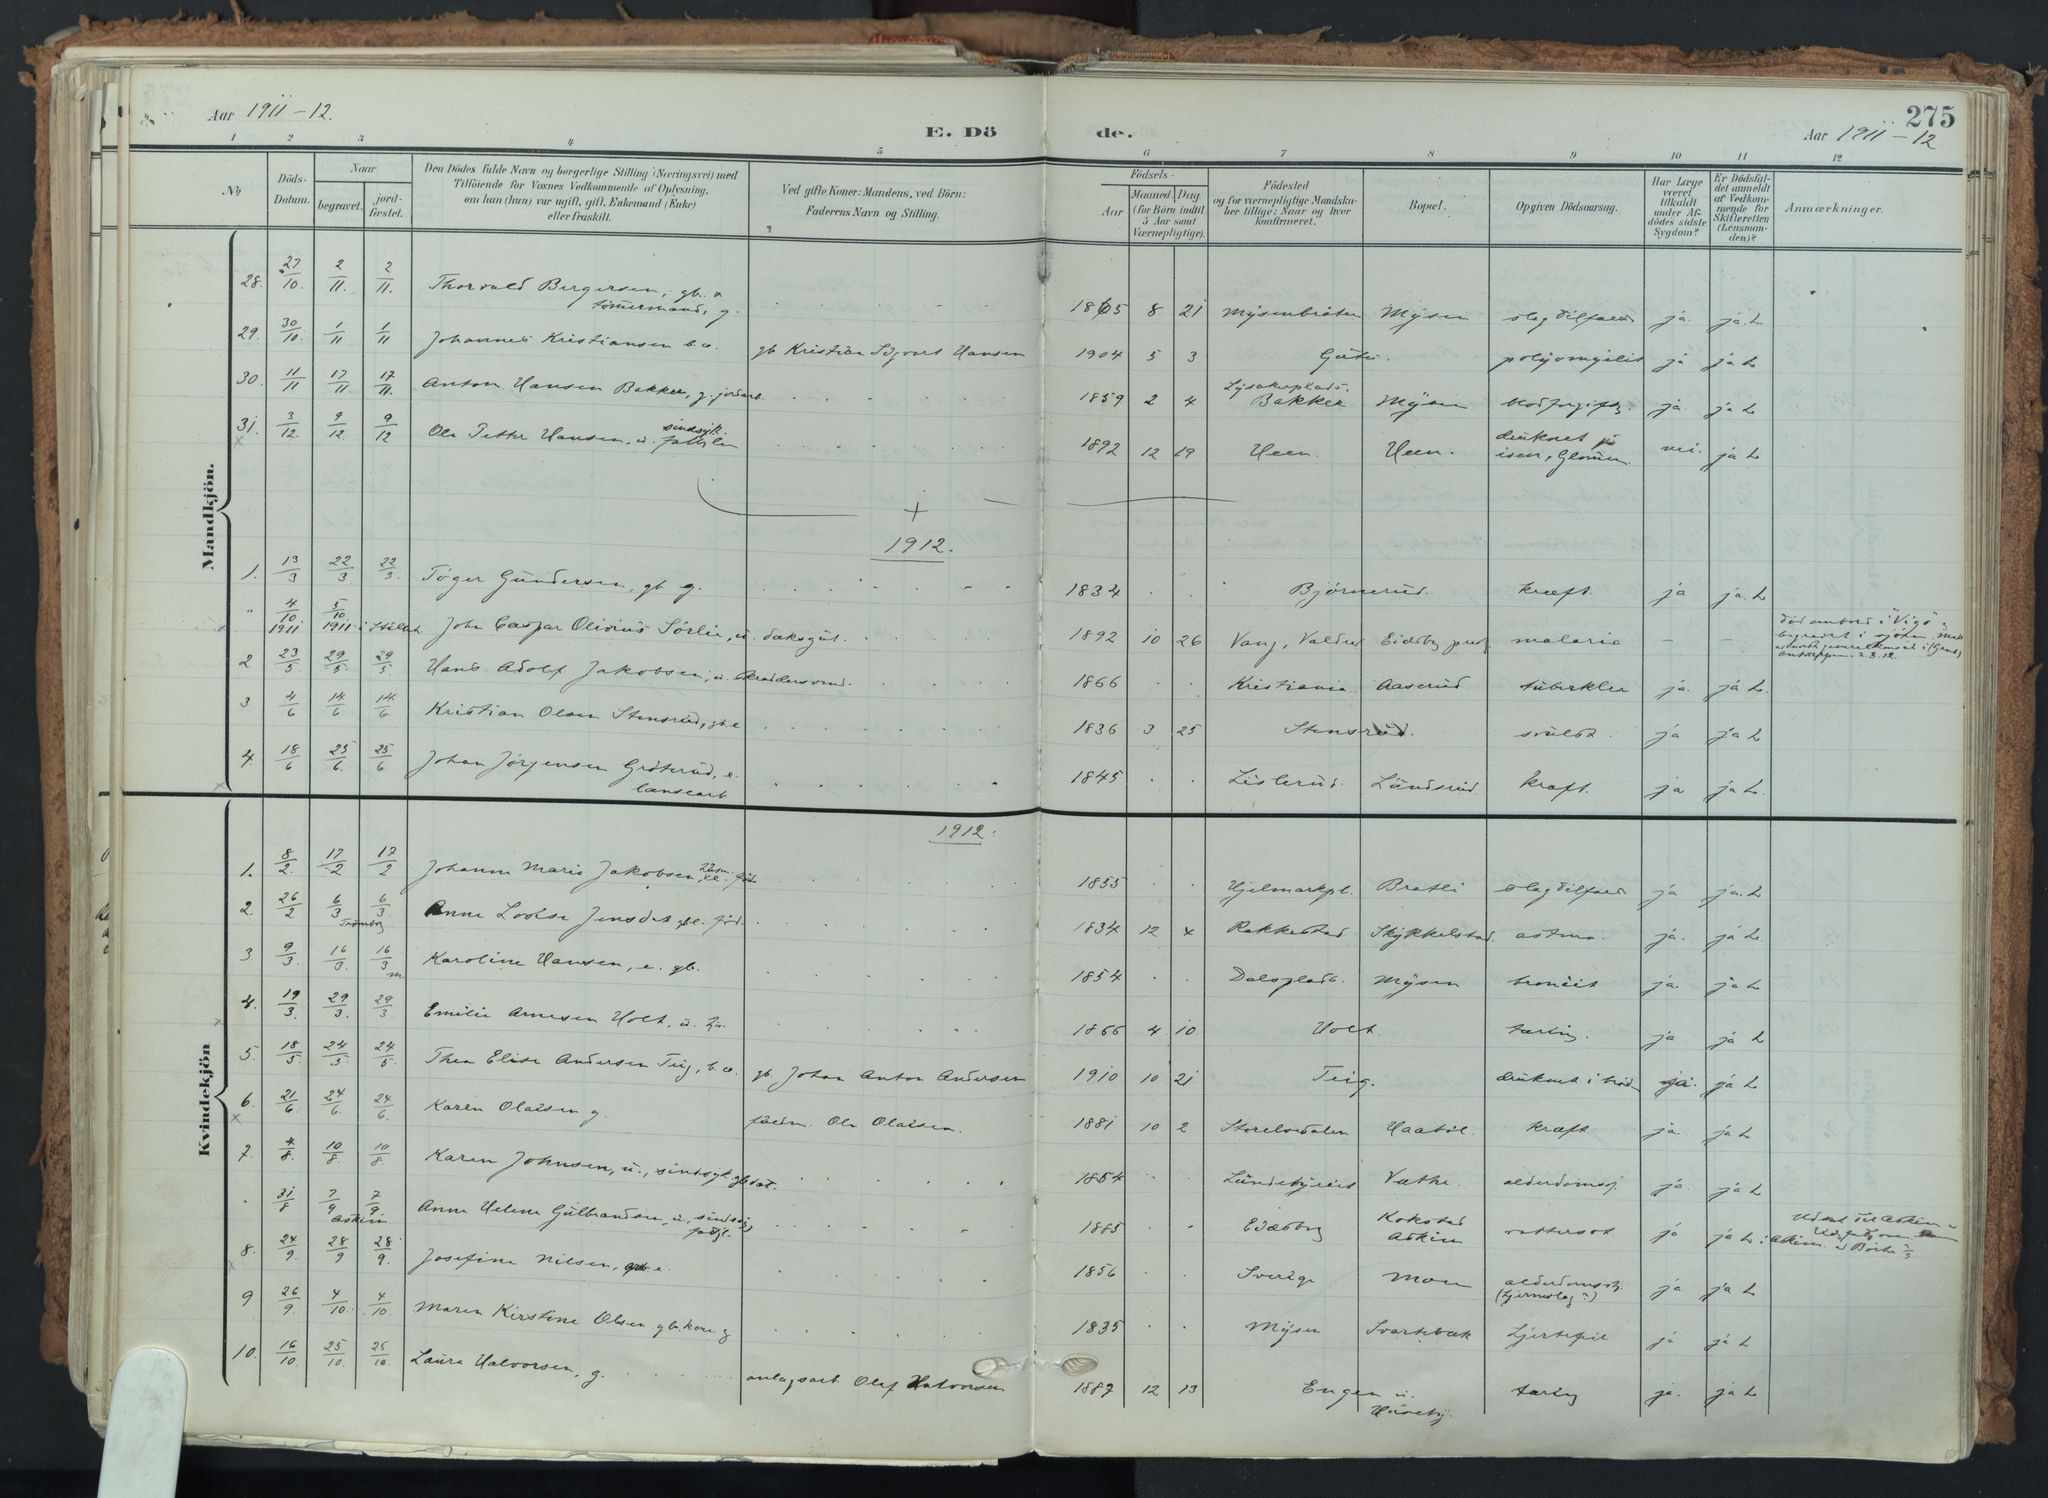 Aar 1911-12.
E. Dö de.
275
Aar 1911-12
1 2 3 4 5 6 7 8 9 10 11 12
No
Döds-Datum.
Naar
begravet.
jord-fæstet.
Den Dödes fulde Navn og borgerlige Stilling (Næringsvei) med
Tilföiende for Voxnes Vedkommende af Oplysning,
om han (hun) var ugift, gift, Enkemand (Enke)
eller fraskilt.
Ved gifte Koner: Mandens, ved Börn:
Faderens Navn og Stilling.
Födsels-
Aar
Maaned. Dag.
(for Börn indtil
5 Aar samt
Værnepligtige).
Födested
og for værnepligtige Mandska-
ber tillige: Naar og hvor
konfirmeret.
Bopæl.
Opgiven Dödsaarsag.
Har Læge
været
tilkaldt
under Af-
dödes sidste
Sygdom?
Er Dödsfal-
det anmeldt
af Vedkom-
mende for
Skifteretten
(Lensman-
den)?
Anmærkninger.
Mandkjön.
28. 27/10. 2/11. 2/11. Thorvald Bergersen, gb. &
tømmermand, g. 1865 8 21 Mysenbråten Mysen slagtilfæld ja. ja. L
29. 30/10. 1/11 1/11 Johannes Kristiansen b.a. gb Kristian Sigvart Hansen 1904 5 3 ja ja L
30. 11/11 17/11. 17/11. Anton Hansen Bakker, g. jordarb. 1859 2 4 Bakker Mysen blodforgiftn. ja. ja L
31. 3/12. 9/12 9/12 Ole Petter Hansen, u. sindsyk. 1892 12 19 Heen. Heen. druknet på
isen, Glommen. nei. ja L
1912.
1. 13/3 22/3 22/3. Tøger Gundersen, gb g. 1834 Bjørnerud. kræft. ja ja. L
" 4/10 1911 5/10 1911 John Caspar Olivius Sørlie, u. dæksgut. 1892 10 26 Vang, Valdres malaria - -
død ombord i "Vigo" &
begravet i sjøen.
2 23/5 29/5. 29/5. Hans Adolf Jakobsen, u. 1866 Kristiania Aaserud tuberkler ja. ja L
3 4/6 14/6 14/6. Kristian Olsen Stensrud, gb. e 1836 3 25 Stensrud. svulst. ja ja L
4. 18/6 25/6. 25/6 Johan Jørgensen Grøterud, e.
lænsearb. 1845 Lislerud. Lundsrud. kræft. ja ja L.
Kvindekjön
1912.
1. 8/2. 17/2 17/2 Johanne Marie Jakobsen, 1855 Hjelmarkpl. Bratli slagtilfæld ja ja. L
2. 26/2 6/3 6/3. Anne Lovise Jensdat. 1834 12 4 Rakkestad Skykkelstad. astma. ja. ja L
Trømborg
3 9/3. 16/3. 16/3 Karoline Hansen, e. gb. 1854 Dalsplads. Mysen ja. ja L
4. 19/3. 29/3. 29/3 Emilie Arnesen Holt, u. 1866 4 10 Holt. tæring. ja ja L
5. 18/5 24/5. 24/5. Thea Elise Andersen Teig, b. a. gb. Johan Anton Andersen 1910 10 21 Teig. druknet i ja. ja L
6. 21/6. 24/6. 24/6. Karen Olaisen g. Ole Olaisen. 1881 10 2 kræft. ja. ja L
7. 4/8. 10/8. 10/8 Karen Johnsen, u., sindsyk 1854 Væthe. alderdomss. ja. ja L
31/8 7/9 7/9. Anne Helene Gulbrandsen, u., sindssyg 1885 Eidsberg Kokstad
Askim ja ja L
Askim
8. 24/9. 28/9 28/9. Josefine Nilsen, e. 1856 Sverige Moen alderdomss.
(hjerneslag?) ja ja L
9 26/9. 4/10. 4/10. Maren Kirstine Olsen gb.kone g 1835 Mysen Svartebæk hjertefeil ja ja L
10. 16/10. 25/10. 25/10. Laura Halvorsen, g. anlægsarb. Olaf Halvorsen 1887 12 13 Engen u.
Huseby. tæring ja. ja L